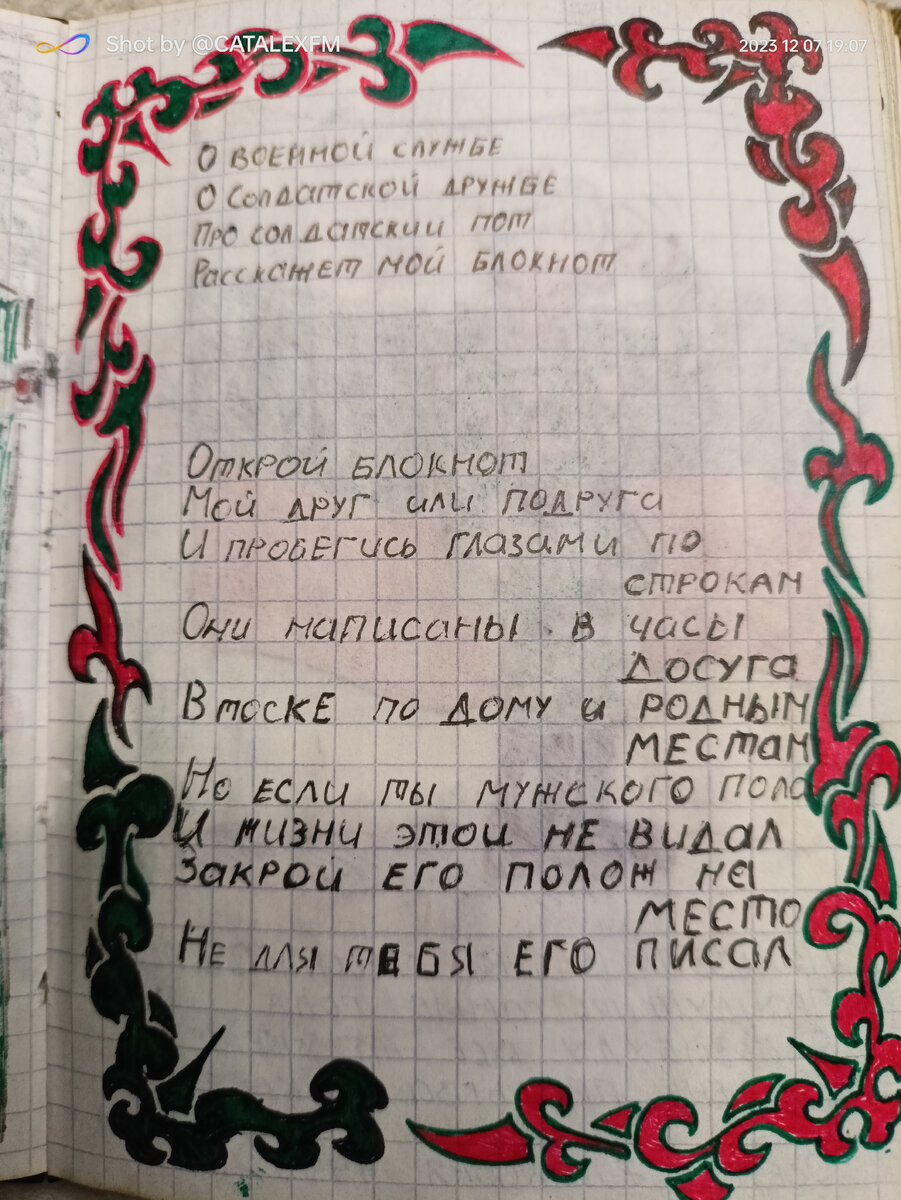 Shot by @CATALEXFM
2023 12 07 19:07
О ВОЕННОЙ СЛУЖБЕ
О СОЛДАТСКОЙ ДРУЖБЕ
ПРО СОЛДАТСКИЙ ПОТ
РАССКАЖЕТ МОЙ БЛОКНОТ
ОТКРОЙ БЛОКНОТ
МОЙ ДРУГ ИЛИ ПОДРУГА
И ПРОБЕГИСЬ ГЛАЗАМИ ПО
СТРОКАМ
ОНИ НАПИСАНЫ В ЧАСЫ
ДОСУГА
В ТОСКЕ ПО ДОМУ И РОДНЫМ
МЕСТАМ
НО ЕСЛИ ТЫ МУЖСКОГО ПОЛА
И ЖИЗНИ ЭТОЙ НЕ ВИДАЛ
ЗАКРОЙ ЕГО ПОЛОЖ НА
МЕСТО
НЕ ДЛЯ ТЕБЯ ЕГО ПИСАЛ